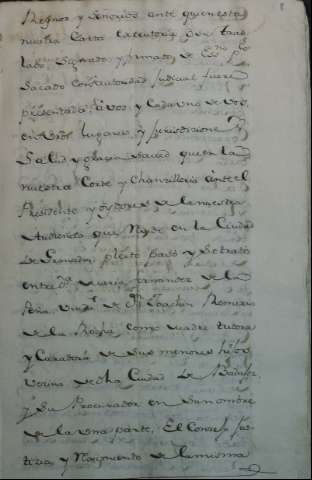 Reynos y Señorios ante quien esta
nuestra Carta executoria, o su tras
lado Signado y firmado, de esno ppco
Sacado con autoridad Judicial fuere
presentada, a vos, y cada uno de vos
en vros lugares, y jurisdiciones
Salud y gracia Saved que en la
nuestra Corte y Chancilleria ante el
Presidente y Oydores, de la nuestra
Audiencia que reside en la Ciudad
de Granada, pleito pasó y se trató
entre Da Maria fernandez de la
Peña, viuda de Dn Joachin Romero
de la como madre tutora
y Curadora de sus menores hijos
vecina de dha Ciudad de
y Su Procurador en su nombre
de la una parte, El Consejo Jus-
ticia, y Regimiento de la misma